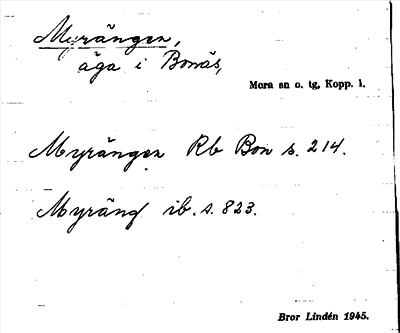 Myrängen,
äga i Bonäs,
Mora sn o. tg, Kopp. l.
Myrängen Rb Bon s. 214.
Myräng ib. s. 823.
Bror Lindén 1945.